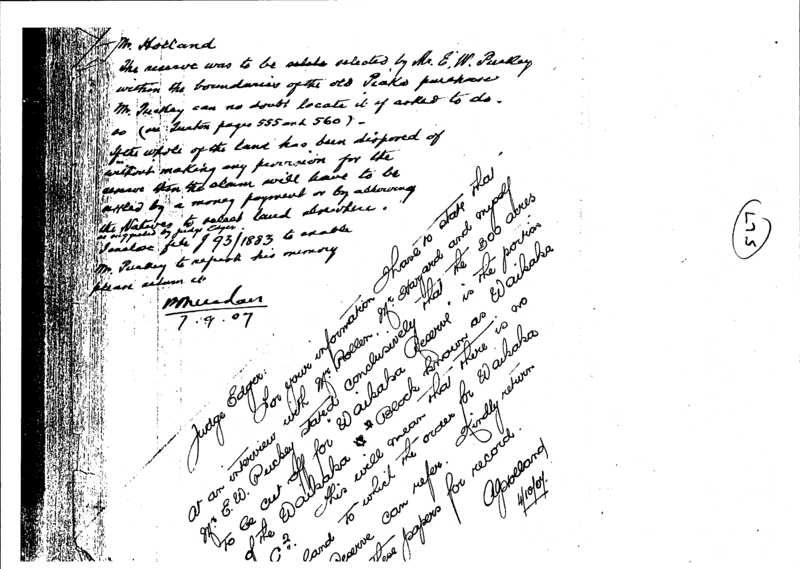 Mr. Holland
The reserve was to be selected by Mr. E. W. Puckey
within the boundaries of the old Piako purchase
Mr. Puckey can no doubt locate it if asked to do.
so (see Turton pages 555 and 560).
If the whole of the land has been disposed of
without making any provision for the
reserve then the claim will have to be
settled by a money payment or by allowing
the Natives to select land elsewhere.
as suggested by Judge Edger.
I enclose file J 93/1883 to enable
Mr. Puckey to refresh his memory
please return it
7. 9. 07
Judge Edger:
For your information I have to state that
at an interview with Mr. Allen, Mr. Hazard and myself
Mr. E. W. Puckey stated conclusively that the 300 acres
to be cut off for "Waikaka Reserve" is the portion
of the Waikaka 2 Block known as Waikaka
C2. This will mean that there is no
land to which the order for Waikaka
Reserve can refer. Kindly return
these papers for record.
Holland
4/10/07.
L75